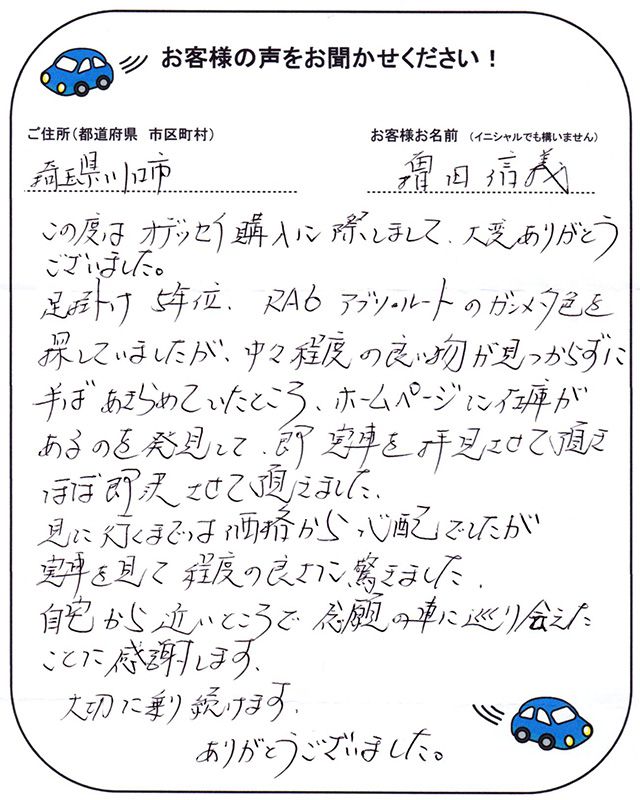 お客様の声をお聞かせください！
ご住所（都道府県　市区町村）
お客様お名前　（イニシャルでも構いません）
埼玉県川口市
増田信義
この度は オデッセイ購入に際しまして、大変ありがとう
ございました。
足掛け 5年位、RA6 アブソルートのガンメタ色を
探していましたが、中々程度の良い物が見つからずに
半ばあきらめていたところ、ホームページに在庫が
あるのを発見して、即 実車を拝見させて頂き
ほぼ即決させて頂きました。
見に行くまでは価格から心配でしたが
実車を見て程度の良さに驚きました。
自宅から近いところで念願の車に巡り会えた
ことに感謝します。
大切に乗り続けます。
ありがとうございました。